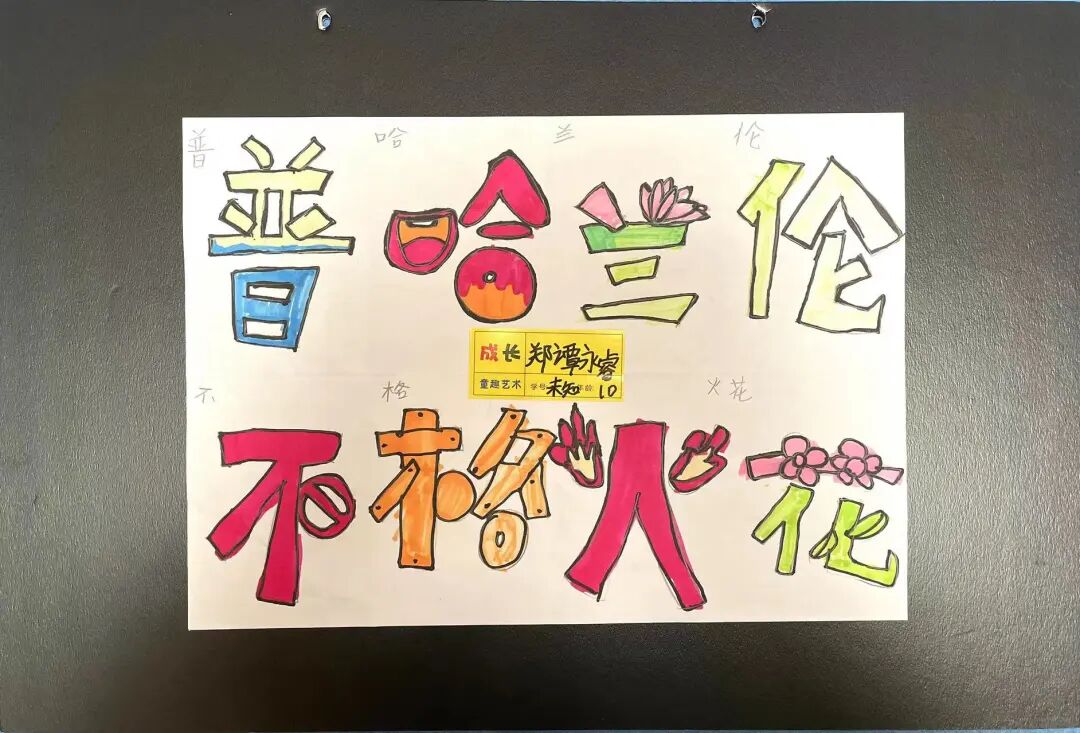 普 哈 兰 伦
普哈兰伦
成长 郑谭永睿
童趣艺术 学号 未知 年龄: 10
不 格 火花
不格火花